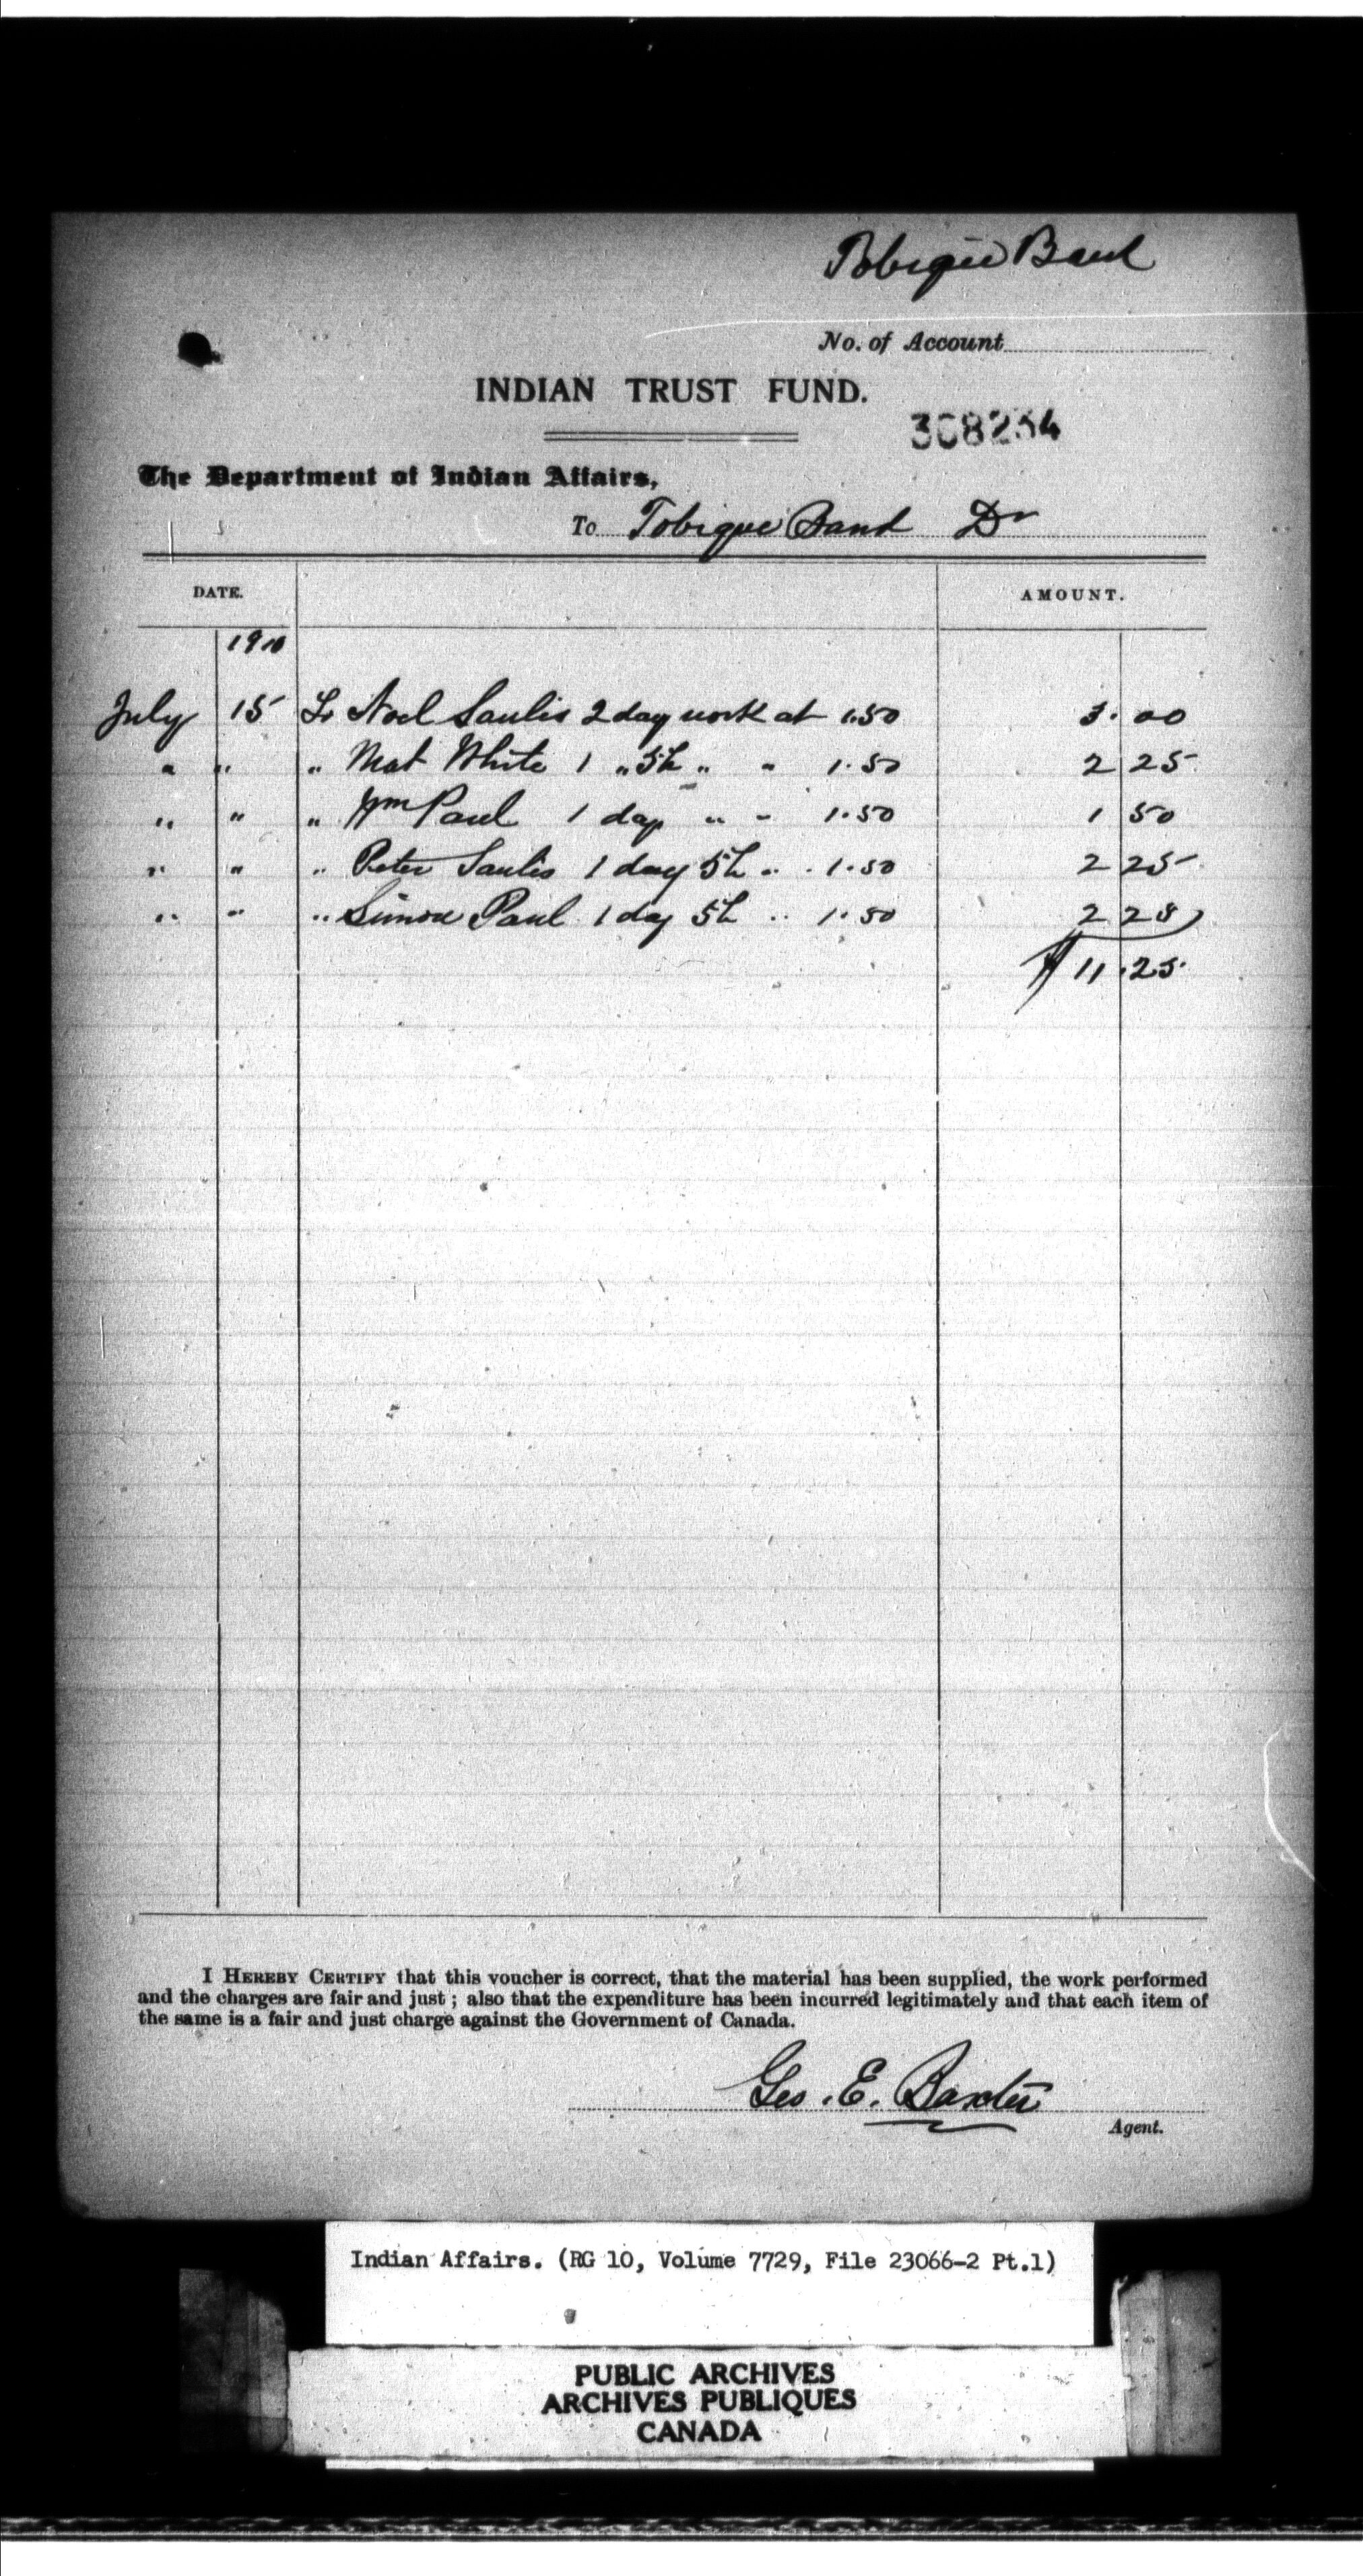 Tobique Band
No. of Account
INDIAN TRUST FUND.
308234
The Department of Indian Affairs,
To Tobique Band Dr
DATE. AMOUNT.
1910
July 15 To Noel Saulis 2 day work at 1.50 3.00
" " " Mat White 1 " 5h " " 1.50 2 25
" " " Wm Paul 1 day " " 1.50 1 50
" " " Peter Saulis 1 day 5h " . 1.50 2 25
" " " Simon Paul 1 day 5h " 1.50 2 25
$ 11.25
I HEREBY CERTIFY that this voucher is correct, that the material has been supplied, the work performed
and the charges are fair and just ; also that the expenditure has been incurred legitimately and that each item of
the same is a fair and just charge against the Government of Canada.
Geo. E. Baxter
Agent.
Indian Affairs. (RG 10, Volume 7729, File 23066-2 Pt.1)
PUBLIC ARCHIVES
ARCHIVES PUBLIQUES
CANADA